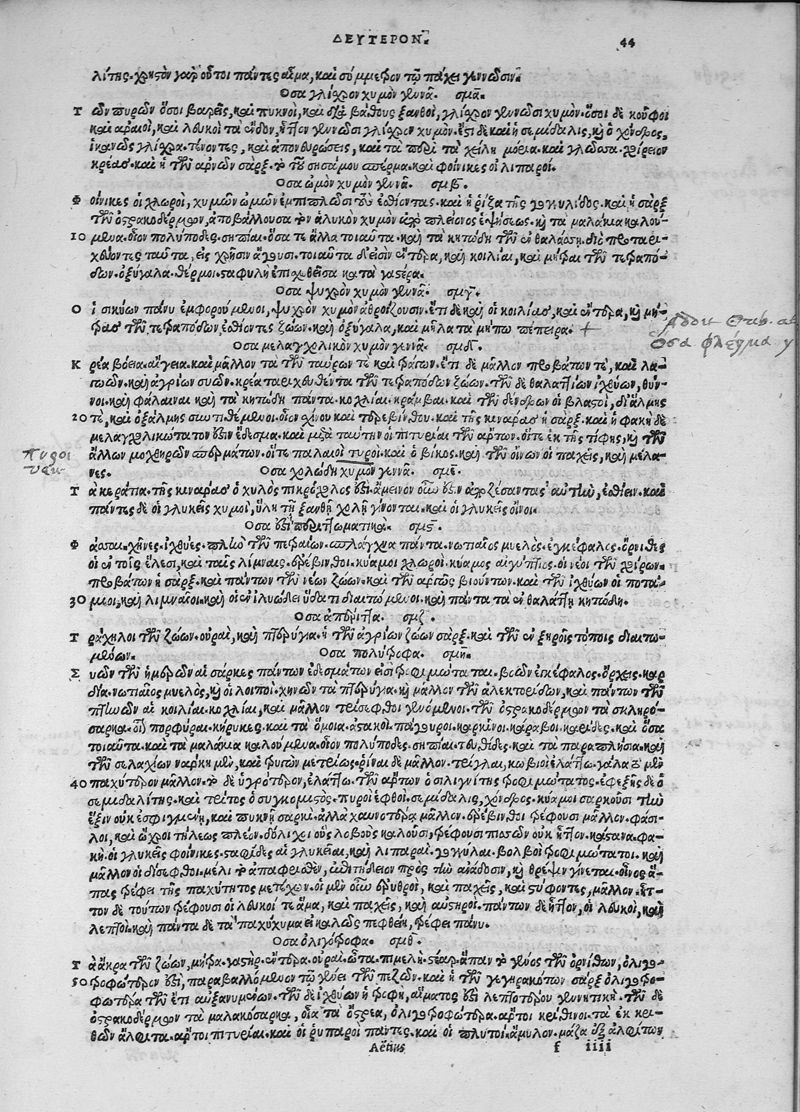 ΔΕΥΤΕΡΟΝ. 44
λίτης. χρηστὸν γὰρ οὗτοι πάντες αἷμα, καὶ σύμμετρον τῷ πάχει γεννῶσιν.
Ὅσα γλίχρον χυμὸν γεννᾷ. σμα.
Τῶν πυρῶν ὅσοι βαρεῖς, καὶ πυκνοὶ, καὶ διὰ βάθους ξανθοὶ, γλίχρον γεννῶσι χυμόν. ὅσοι δὲ κοῦφοι
καὶ ἀραιοὶ, καὶ λευκοὶ τὰ ἔνδον, ἧττον γεννῶσι γλίχρον χυμόν. ἔτι δὲ καὶ ἡ σεμίδαλις, καὶ ὁ χόνδρος,
ἱκανῶς γλίχρα. τένοντες, καὶ ἀπονευρώσεις, καὶ τὰ περὶ τὰ χείλη μόρια. καὶ γλῶσσα. χοίρειον
κρέας. καὶ ἡ τῶν ἀρνῶν σάρξ. τὸ τοῦ σησάμου σπέρμα. καὶ φοίνικες οἱ λιπαροί.
Ὅσα ὠμὸν χυμὸν γεννᾷ. σμβ.
Φοίνικες οἱ χλωροὶ, χυμῶν ὠμῶν ἐμπιπλῶσι τοὺς ἐσθίοντας. καὶ ἡ ῥίζα τῆς γογγυλίδος. καὶ ἡ σὰρξ
τῶν ὀστρακοδέρμων, ἀποβάλλουσα τὸν ἁλυκὸν χυμὸν ἀπὸ πλείονος ἑψήσεως. καὶ τὰ μαλάκια καλού-
10 μενα. οἷον πολύποδες. σηπίαι. ὅσα τε ἄλλα τοιαῦτα. καὶ τὰ κητώδη τῶν ἐν θαλάσσῃ. διὸ προταρι-
χεύοντες ταῦτα, εἰς χρῆσιν ἄγουσι. τοιαῦτα δ' εἰσὶν ἔντερα, καὶ κοιλίαι, καὶ μῆτραι τῶν τετραπό-
δων. ὀξύγαλα. θέρμοι. σταφυλὴ ἐπισχεθεῖσα κατὰ γαστέρα.
Ὅσα ψυχρὸν χυμὸν γεννᾷ. σμγ.
Οἱ σικύων πάνυ ἐμφορούμενοι, ψυχρὸν χυμὸν ἀθροίζουσιν. ἔτι δὲ καὶ οἱ κοιλίας, καὶ ἔντερα, καὶ μή-
τρας τῶν τετραπόδων ἐσθίοντες ζώων. καὶ ὀξύγαλα, καὶ μῆλα τὰ μήπω πέπειρα. +
Ὅσα φλέγμα γ
Ὅσα μελαγχολικὸν χυμὸν γεννᾷ. σμδ.
Κρέα βόεια. αἴγεια. καὶ μᾶλλον τὰ τῶν ταύρων τε καὶ τράγων. ἔτι δὲ μᾶλλον προβάτων τε, καὶ λα-
γωῶν. καὶ ἀγρίων συῶν. κρέα ταριχευθέντα τῶν τετραπόδων ζώων. τῶν δὲ θαλαττίων ἰχθύων, θύν-
νοι. καὶ φάλαιναι καὶ τὰ κητώδη πάντα. κοχλίαι. κράμβαι. καὶ τῶν δένδρων οἱ βλαστοὶ, δι' ἅλμης
20 τε, καὶ ὀξάλμης συντιθέμενοι. οἷον σχίνου καὶ τερεβίνθου. καὶ τῆς κινάρας ἡ σάρξ. καὶ ἡ φακῆ δὲ
μελαγχολικώτατόν ἐστιν ἔδεσμα. καὶ μετὰ ταύτην οἱ πιτυρίαι τῶν ἄρτων. οἵ τε ἐκ τῆς τίφης, καὶ τῶν
ἄλλων μοχθηρῶν σπερμάτων. οἵ τε παλαιοὶ τυροί. καὶ ὁ βίκος. καὶ τῶν οἴνων οἱ παχεῖς, καὶ μέλα-
νες.
Ὅσα χολώδη χυμὸν γεννᾷ. σμε.
Τὰ κεράτια. τῆς κινάρας ὁ χυλὸς πικρόχολός ἐστι. ἄμεινον οὖν ἐστιν ἀποζέσαντας αὐτὴν, ἐσθίειν. καὶ
πάντες δὲ οἱ γλυκεῖς χυμοὶ, ὕλη τῇ ξανθῇ χολῇ γίνονται. καὶ οἱ γλυκεῖς οἶνοι.
Ὅσα ἐστὶ περιττωματικά. σμϛ.
Φάσσαι. χῆνες. ἰχθύες. πλὴν τῶν πετραίων. σπλάγχνα πάντα. νωτιαῖος μυελός. ἐγκέφαλος. ὄρνιθες
οἱ ἐν τοῖς ἕλεσι, καὶ ταῖς λίμναις. ἐρέβινθοι. κύαμοι χλωροί. κύαμος αἰγύπτιος. οἱ νέοι τῶν χοίρων.
προβάτων ἡ σάρξ. καὶ πάντων τῶν νέων ζώων. καὶ τῶν ἀργῶς βιούντων. καὶ τῶν ἰχθύων οἱ ποτά-
30 μιοι, καὶ λιμναῖοι. καὶ οἱ ἐν ἰλυώδει ὕδατι διαιτώμενοι. καὶ πάντα τὰ ἐν θαλάττῃ κητώδη.
Ὅσα ἀπέριττα. σμζ.
Τράχηλοι τῶν ζώων. οὐραὶ, καὶ πτέρυγα. ἡ τῶν ἀγρίων ζώων σάρξ. καὶ τῶν ἐν ξηροῖς τόποις διαιτω-
μένων. Ὅσα πολύτροφα. σμη.
Συῶν τῶν ἡμέρων αἱ σάρκες πάντων ἐδεσμάτων εἰσὶ τροφιμώταται. βοῶν ἐγκέφαλος. ὄρχεις. καρ
δία. νωτιαῖος μυελὸς, καὶ οἱ λοιποί. χηνῶν τὰ πτέρυγα. καὶ μᾶλλον τῶν ἀλεκτορίδων, καὶ πάντων τῶν
πτηνῶν αἱ κοιλίαι. κοχλίαι, καὶ μᾶλλον τρίσεφθοι γενόμενοι. τῶν ὀστρακοδέρμων τὰ σκληρό-
σαρκα. οἷον πορφύραι. κήρυκες. καὶ τὰ ὅμοια. ἀστακοί. πάγουροι. καρκίνοι. κάραβοι. καρίδες. καὶ ὅσα
τοιαῦτα. καὶ τὰ μαλάκια καλούμενα. οἷον πολύποδες. σηπίαι. τευθίδες. καὶ τὰ παραπλήσια. καὶ
τῶν σελαχίων νάρκη μὲν, καὶ τρυγὼν μετρίως. ῥῖναι δὲ μᾶλλον. τρίγλαι, κωβιοὶ ἐλάττω. γάλα τὸ μὲν
40 παχύτερον μᾶλλον. τὸ δὲ ὑγρότερον, ἐλάττω. τῶν ἄρτων ὁ σιλιγνίτης τροφιμώτατος. ἐφεξῆς δὲ ὁ
σεμιδαλίτης. καὶ τρίτος ὁ συγκομιστός. πυροὶ ἑφθοί. σεμίδαλις, χόνδρος. κύαμοι σαρκοῦσι τὴν
ἕξιν οὐκ ἐσφιγμένῃ, καὶ πυκνῇ σαρκὶ. ἀλλὰ χαυνοτέρᾳ μᾶλλον. ἐρέβινθοι τρέφουσι μᾶλλον. φάσι-
λοι, καὶ ὦχροι τήλεως πλέον. δόλιχοι οὓς λοβοὺς καλοῦσι, τρέφουσι πισσῶν οὐκ ἧττον. κάστανα. φα-
κῆ. οἱ γλυκεῖς φοίνικες. σταφίδες αἱ γλυκεῖαι, καὶ λιπαραί. γογγύλαι. βολβοὶ τροφιμώτατοι. καὶ
μᾶλλον οἱ δίσεφθοι. μέλι τὸ ἀπαφρισθὲν, ἐπιτήδειον πρὸς τὴν ἀνάδοσιν, καὶ θρέψιν γίνεται. οἶνος ἅ-
πας τρέφει τῆς παχύτητος μετέχων. οἱ μὲν οὖν ἐρυθροὶ, καὶ παχεῖς, καὶ στύφοντες, μᾶλλον. ἧτ-
τον δὲ τούτων τρέφουσι οἱ λευκοί τε ἅμα, καὶ παχεῖς, καὶ αὐστηροί. πάντων δὲ ἧττον, οἱ λευκοὶ, καὶ
λεπτοί. καὶ πάντα δὲ τὰ παχύχυμα εἰ καλῶς πεφθείη, τρέφει πάνυ.
Ὅσα ὀλιγότροφα. σμθ.
Τὰ ἄκρα τῶν ζώων, μήτρα. γαστήρ. ἔντερα. οὐραί. ὦτα. πιμελή. στέαρ. ἅπαν τὸ γένος τῶν ὀρνίθων, ὀλιγο
50 τροφώτερόν ἐστι, παραβαλλόμενον τῷ γένει τῶν πεζῶν. καὶ ἡ τῶν γεγηρακότων σὰρξ ὀλιγο-
τροφωτέρα τῶν ἔτι αὐξανομένων. τῶν δὲ ἰχθύων ἡ τροφὴ, αἵματός ἐστι λεπτοτέρου γεννητική. τῶν δὲ
ὀστρακοδέρμων τὰ μαλακόσαρκα, οἷα τὰ ὄστρεα, ὀλιγοτροφώτερα. ἄρτοι κρίθινοι. τὰ ἐκ κρι-
θῶν ἄλφιτα. ἄρτοι πιτυρίαι. καὶ οἱ ῥυπαροὶ πάντες. καὶ οἱ πλυτοί. ἄμυλον. μᾶζα ἐξ ἀλφίτων
Aëtius f iiii